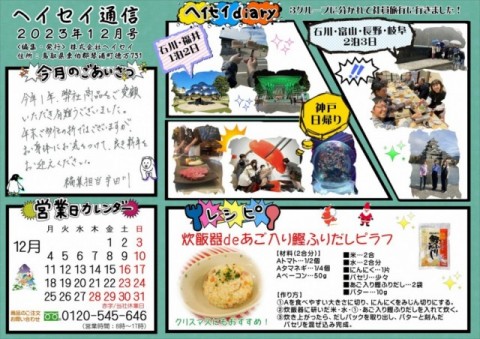 ヘイセイ通信
2023年12月号
(編集・発行)株式会社ヘイセイ
住所:鳥取県東伯郡琴浦町徳万751
今月のごあいさつ
今年1年、弊社商品をご愛顧
いただき有難うございました。
年末で多忙の折とは存じますが、
お身体にお気をつけて、良き新年を
お迎えください。
編集担当
ヘイセイdiary
3グループに分かれて社員旅行に行きました!
石川・福井
1泊2日
石川・富山・長野・岐阜
2泊3日
神戸
日帰り
営業日カレンダー
12月
月 火 水 木 金 土 日
1 2 3
4 5 6 7 8 9 10
11 12 13 14 15 16 17
18 19 20 21 22 23 24
25 26 27 28 29 30 31
赤字/当社休業日
商品のご注文
お問い合わせ
0120-545-646
(営業時間:8時~17時)
レシピ
炊飯器deあご入り鰹ふりだしピラフ
クリスマスにもおすすめ!
【材料(2合分)】
Aトマト…1/2個
Aタマネギ…1/4個
Aベーコン…50g
■米…2合
■水…2合分
■にんにく…1片
■パセリ…少々
■あご入り鰹ふりだし…2袋
■バター…10g
【作り方】
①Aを食べやすい大きさに切り、にんにくをみじん切りにする。
②炊飯器に研いだ米・水・①・あご入り鰹ふりだしを入れて炊く。
③炊き上がったら、だしパックを取り出し、バターと刻んだ
パセリを混ぜ込み完成。